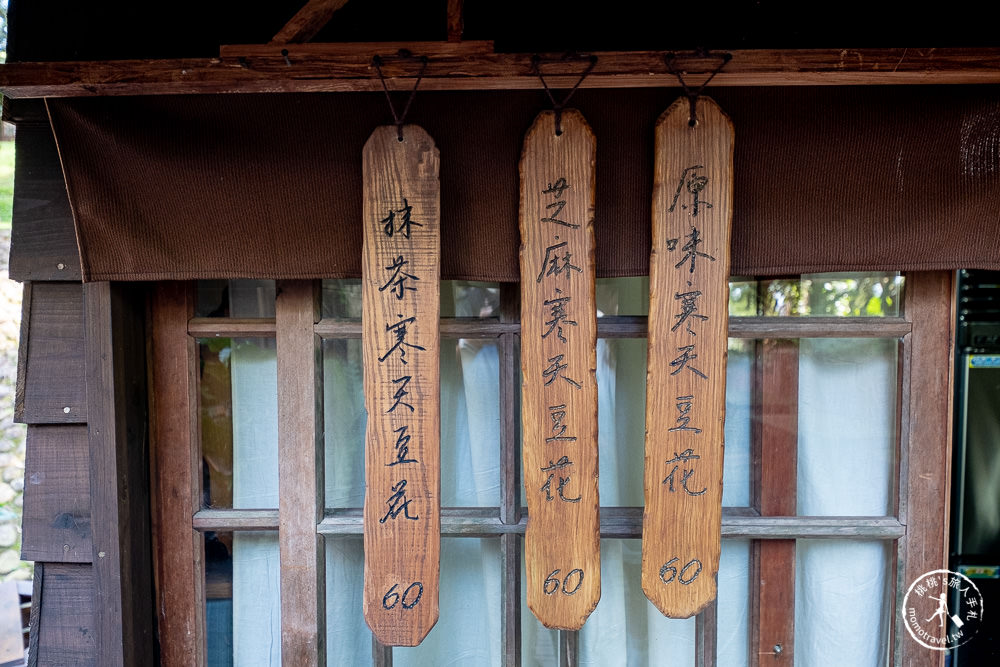 原味寒天豆花 60
芝麻寒天豆花 60
抹茶寒天豆花 60
桃桃's旅人手札
momotravel.tw